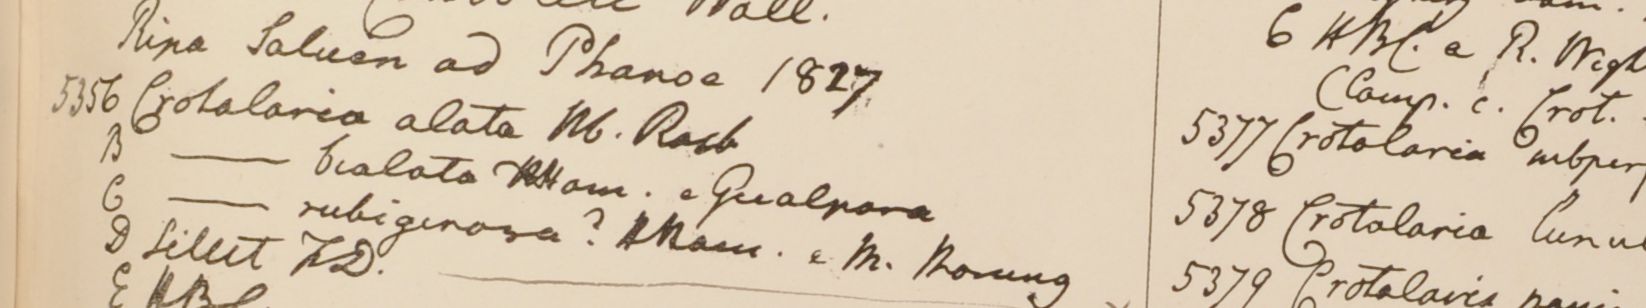 Wall.
Ripa Saluen ad Phanoe 1827
5356 Crotalaria alata M. Roxb
B —— bialata HHam. e Gualpara
C —— rubiginosa? HHam. e M. Morung
D Sillet FD.
E HBC.
6 HBC. e R. Wigh
(Comp. c. Crot.
5377 Crotalaria subper
5378 Crotalaria
5379 Crotalaria